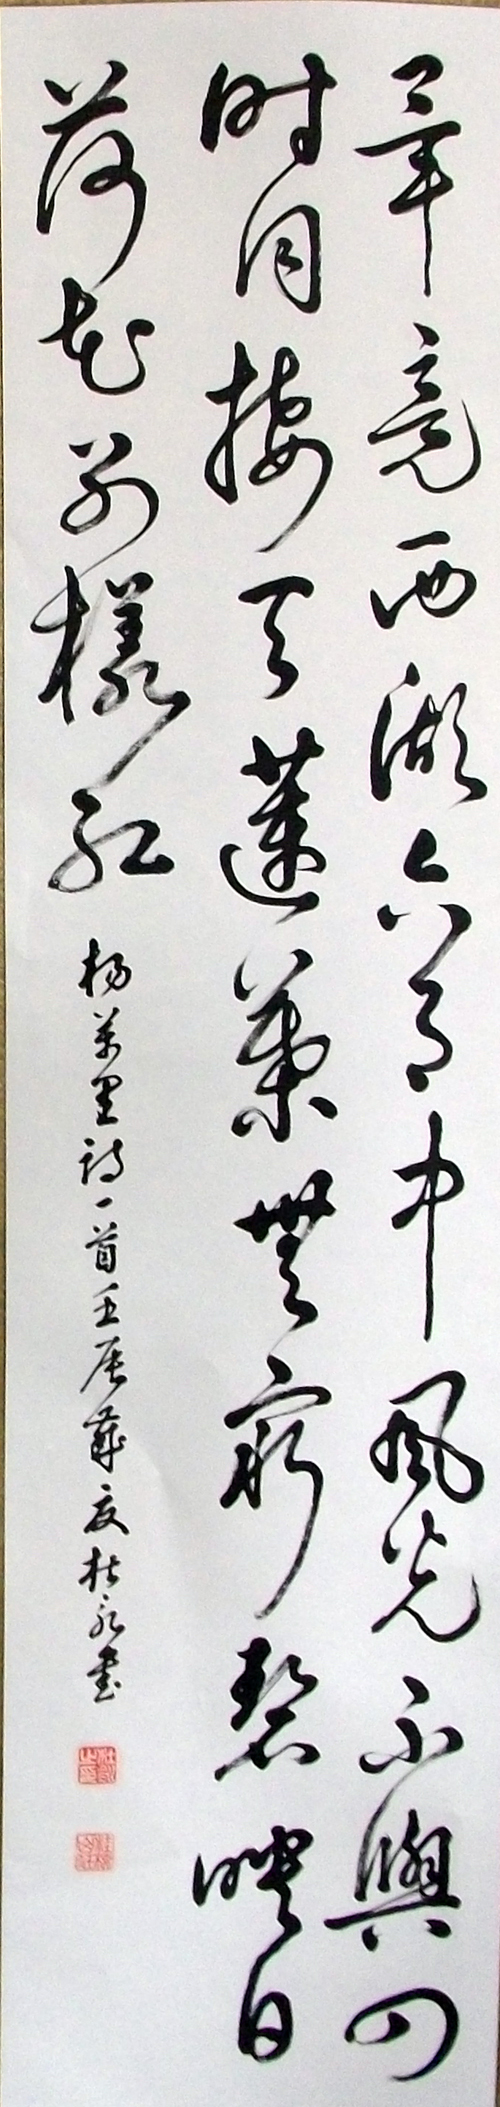 畢竟西湖六月中風光不與四
時同接天蓮葉無窮碧映日
荷花別樣紅
楊萬里詩一首壬辰歲夏杜永書